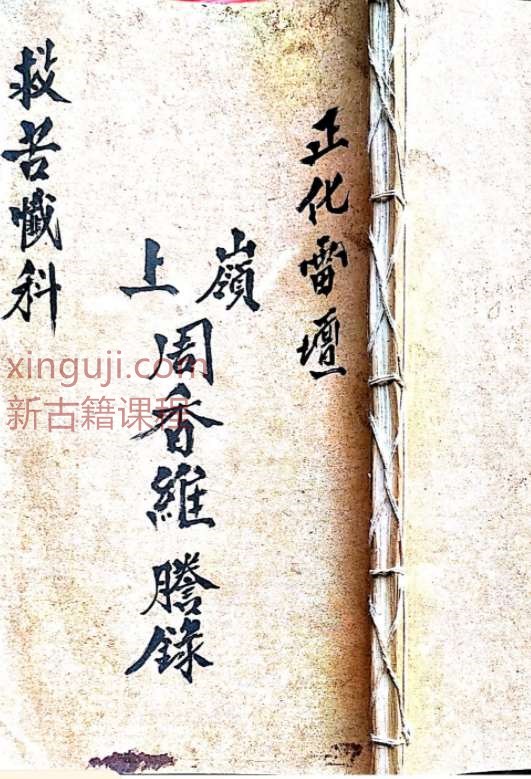 正化雷壇
嶺上
周香維謄錄
救苦懺科
xinguji.com
新古籍课程